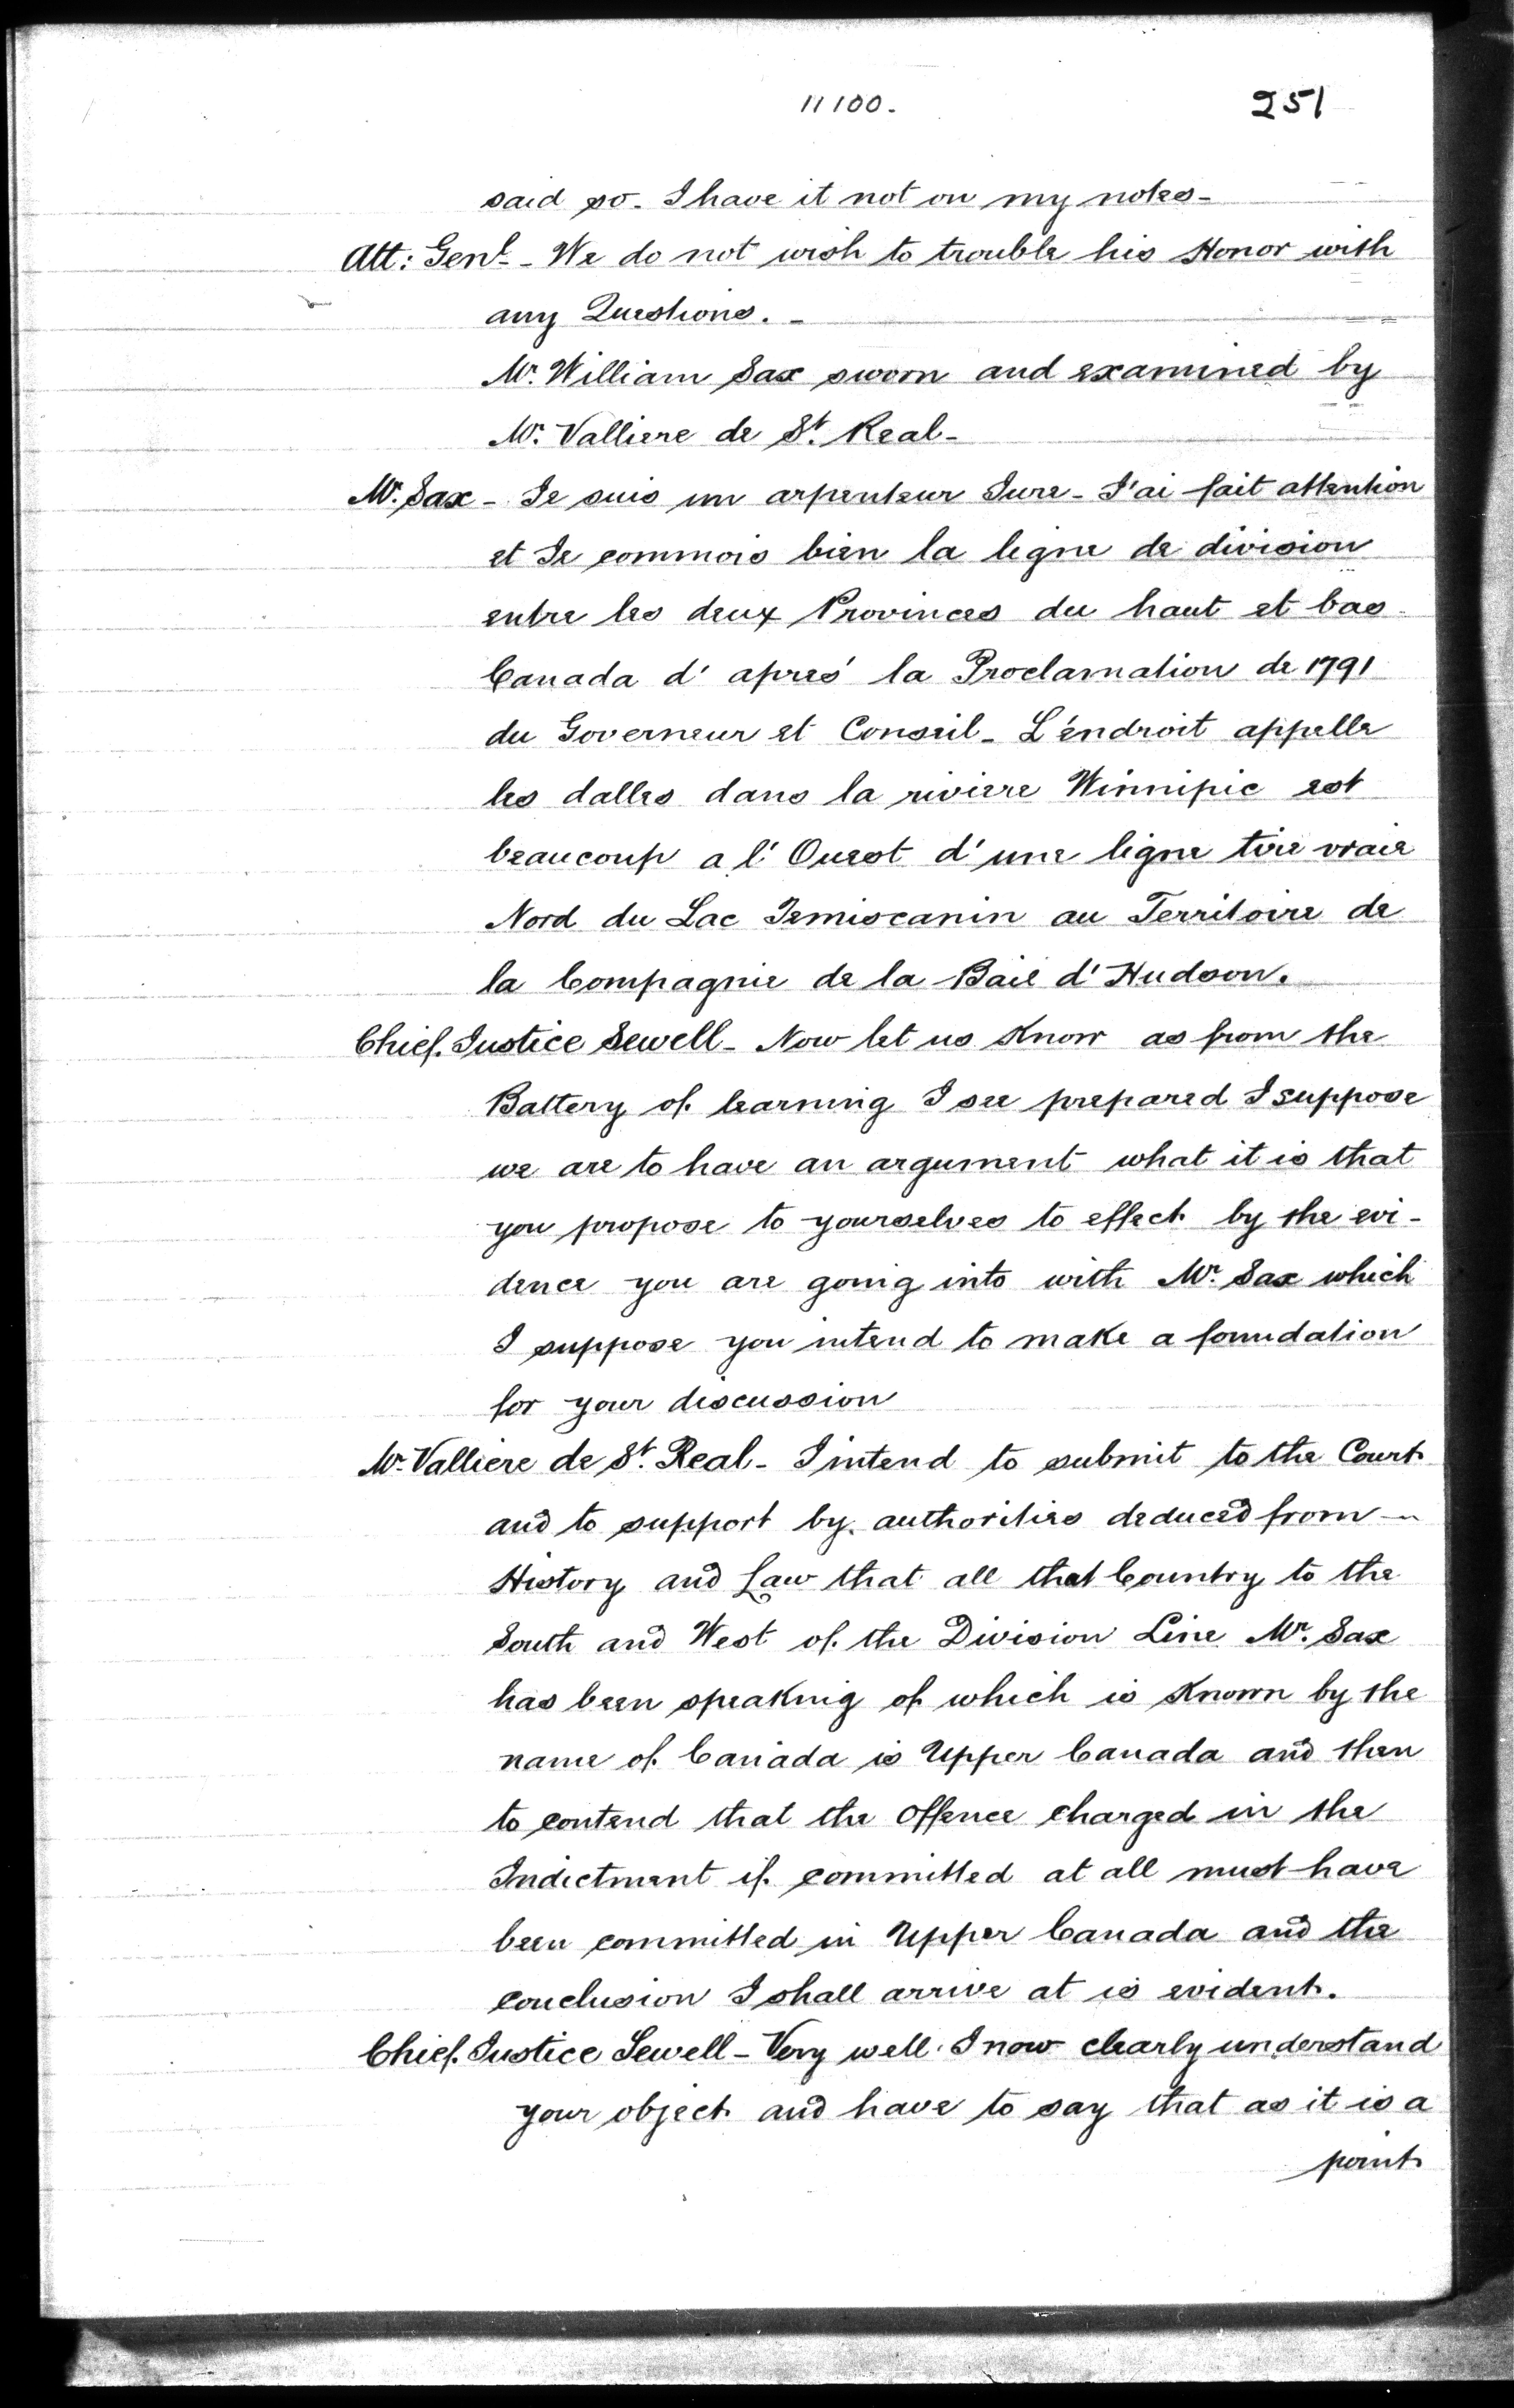 11100.
251
said so. I have it not on my notes-
Att: Genl - We do not wish to trouble his Honor with
any Questions. -
Mr. William Sax sworn and examined by
Mr. Valliere de St. Real-
Mr. Sax - Je suis un arpenteur Jure - J'ai fait attention
et Je connois bien la legne de division
entre les deux Provinces du haut et bas
Canada d' aprés la Proclamation de 1791
du Governeur et Conseil - L'éndroit appelle
les dalles dans la riviere Winnipic est
beaucoup a l' Ouest d' une ligne tire vraie
Nord du Lac Temiscanin au Territoire de
la Compagnie de la Baie d' Hudson.
Chief Justice Sewell - Now let us Know as from the
Battery of learning I see prepared I suppose
we are to have an argument what it is that
you propose to yourselves to effect by the evi-
dence you are going into with Mr. Sax which
I suppose you intend to make a foundation
for your discussion
Mr. Valliere de St. Real - I intend to submit to the Court
and to support by authorities deduced from -
History and Law that all that Country to the
South and West of the Division Line Mr. Sax
has been speaking of which is Known by the
name of Canada is Upper Canada and then
to contend that the offence charged in the
Indictment if committed at all must have
been committed in Upper Canada and the
conclusion I shall arrive at is evident.
Chief Justice Sewell - Very well. I now clearly understand
your object and have to say that as it is a
point